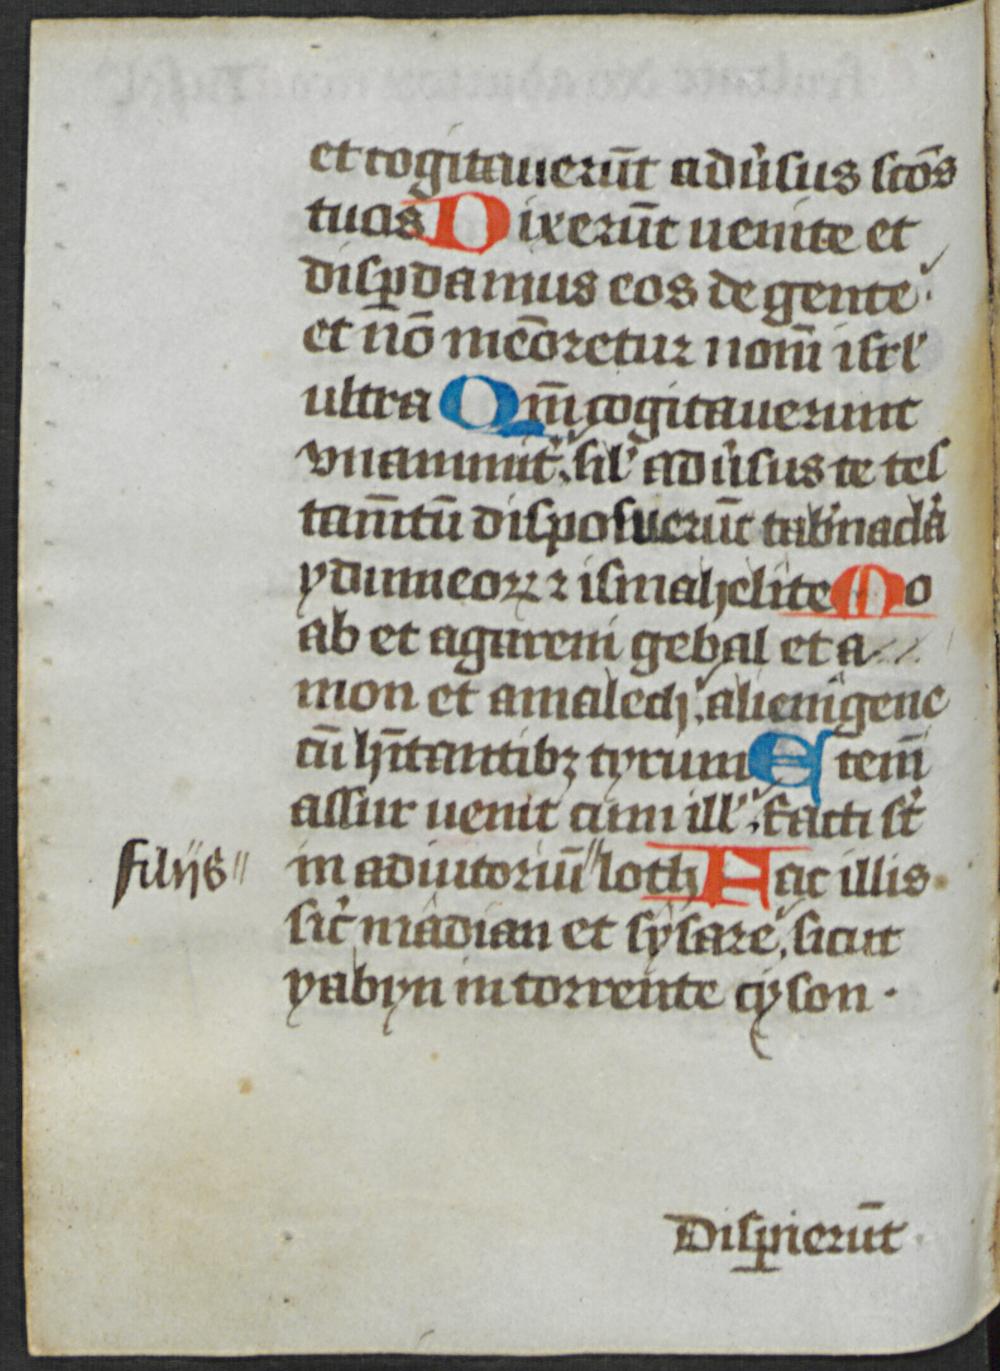 et cogitauerūt adu̓sus scōs
tuos Dixerūt uenite et
disꝑdamus eos de gente
et nō mēoretur nom̄ isrl̓
ultra Qm̄ cogitauerunt
vnanimit̓ sil̓ adu̓sus te tes
tam̄tū disposuerūt tab̓nacl̓a
ydumeoꝝ ⁊ ismahelite Mo
ab et agareni gebal et a
mon et amalech alienigene
cū hītantibꝫ tyrum Etem̄
assur uenit cum ill̓ facti st̓
filijs
in adiutoriū loth Fac illis
sic̓ madian et sysare sicut
yabyn in torrente cyson ·
Disꝑierūt